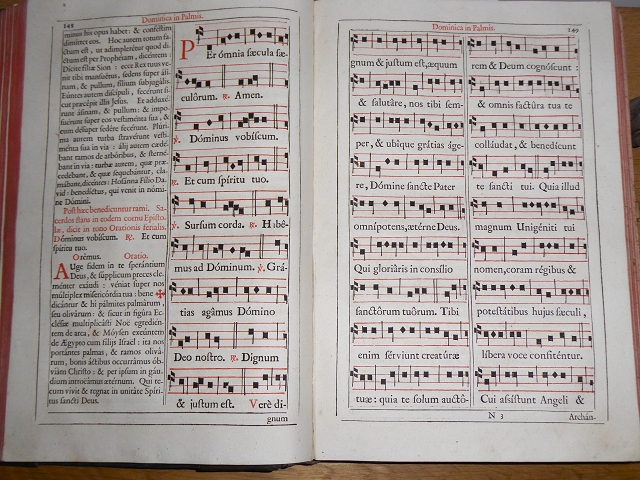 148 Dominica in Palmis.
minus his opus habet: & confestim
dimittet eos. Hoc autem totum fa-
ctum est, ut adimpleretur quod di-
ctum est per Prophetam, dicentem:
Dícite fíliæ Sion: ecce Rex tuus ve-
nit tibi mansuétus, sedens super ási-
nam, & pullum, fílium subjugális.
Eúntes autem discípuli, fecérunt si-
cut præcépit illis Jesus. Et adduxé-
runt ásinam, & pullum: & impo-
suérunt super eos vestiménta sua, &
eum désuper sedére fecérunt. Plúri-
ma autem turba stravérunt vesti-
ménta sua in via: álii autem cædé-
bant ramos de arbóribus, & sterné-
bant in via: turbæ autem, quæ præ-
cedébant, & quæ sequebántur, cla-
mábant, dicéntes: Hosánna Fílio Da-
vid: benedíctus, qui venit in nómi-
ne Dómini.
Post hæc benedicuntur rami. Sa-
cerdos stans in eodem cornu Episto-
læ, dicit in tono Orationis ferialis.
Dóminus vobíscum. ℟. Et cum
spíritu tuo.
Orémus. Oratio.
Auge fidem in te sperántium
Deus, & súpplicum preces cle-
ménter exáudi: véniat super nos
múltiplex misericórdia tua: bene ✠
dicántur & hi pálmites palmárum,
seu olivárum: & sicut in figúra Ec-
clésiæ multiplicásti Noë egredién-
tem de arca, & Móysen exeúntem
de Ægypto cum fíliis Israel: ita nos
portántes palmas, & ramos olivá-
rum, bonis áctibus occurrámus ób-
viàm Christo: & per ipsum in gáu-
dium introëámus ætérnum. Qui te-
cum vivit & regnat in unitáte Spíri-
tus sancti Deus.
PEr ómnia sæcula sæ-
culórum. ℟. Amen.
℣. Dóminus vobíscum.
℟. Et cum spíritu tuo.
℣. Sursum corda. ℟. Habé-
mus ad Dóminum. ℣. Grá-
tias agámus Dómino
Deo nostro. ℟. Dignum
& justum est. Verè di-
gnum
Dominica in Palmis. 149
gnum & justum est, æquum
& salutáre, nos tibi sem-
per, & ubique grátias áge-
re, Dómine sancte Pater
omnípotens, ætérne Deus.
Qui gloriáris in consílio
sanctórum tuórum. Tibi
enim sérviunt creatúræ
tuæ: quia te solum auctó-
rem & Deum cognóscunt:
& omnis factúra tua te
colláudat, & benedícunt
te sancti tui. Quia illud
magnum Unigéniti tui
nomen, coram régibus &
potestátibus hujus sæculi,
líbera voce confiténtur.
Cui assístunt Angeli &
N 3 Archán-